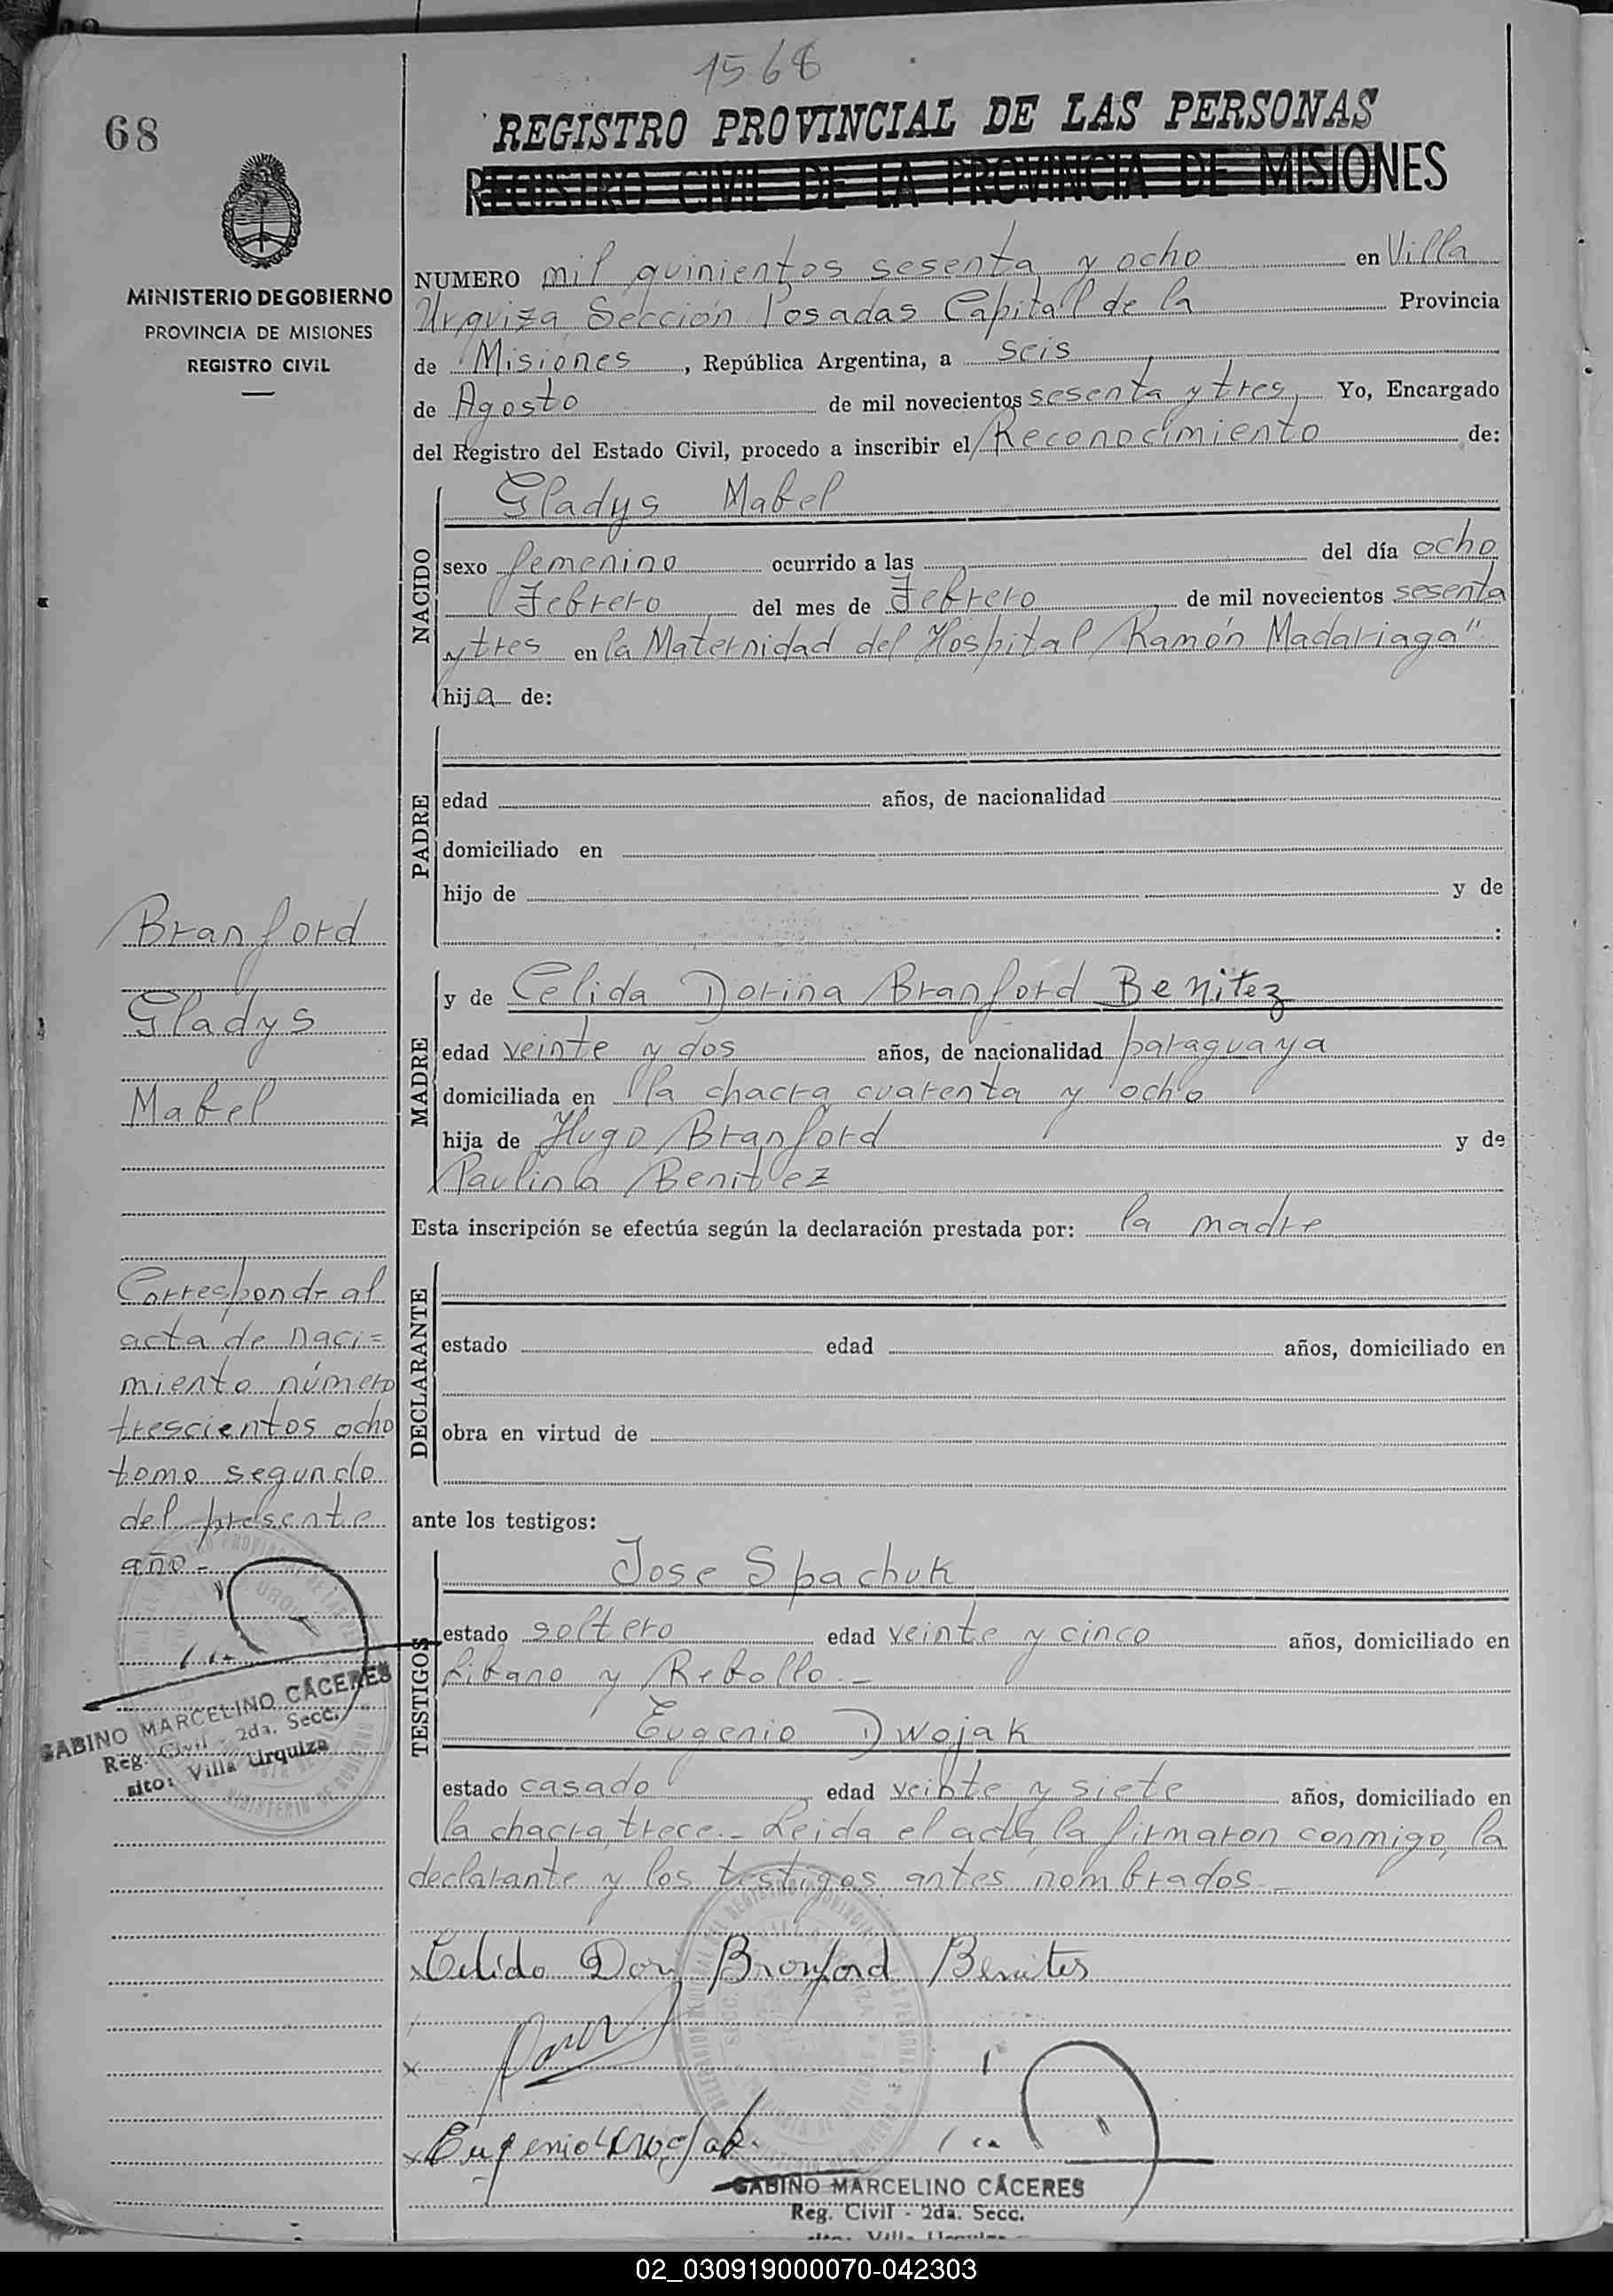 1568
68
REGISTRO PROVINCIAL DE LAS PERSONAS
REGISTRO CIVIL DE LA PROVINCIA DE MISIONES
MINISTERIO DE GOBIERNO
PROVINCIA DE MISIONES
REGISTRO CIVIL
NUMERO mil quinientos sesenta y ocho en Villa
Urquiza Sección Posadas Capital de la Provincia
de Misiones, República Argentina, a seis
de Agosto de mil novecientos sesenta y tres, Yo, Encargado
del Registro del Estado Civil, procedo a inscribir el Reconocimiento de:
NACIDO
Gladys Mabel
sexo femenino ocurrido a las del día ocho
Febrero del mes de Febrero de mil novecientos sesenta
y tres en la Maternidad del Hospital Ramón Madariaga"
hija de:
PADRE
edad años, de nacionalidad
domiciliado en
hijo de y de
:
Branford
Gladys
Mabel
MADRE
y de Celida Dorina Branford Benitez
edad veinte y dos años, de nacionalidad paraguaya
domiciliada en la chacra cuarenta y ocho
hija de Hugo Branford y de
Paulina Benitez
Esta inscripción se efectúa según la declaración prestada por: la madre
Corresponde al
acta de naci=
miento número
trescientos ocho
tomo segundo
del presente
año-
GABINO MARCELINO CÁCERES
Reg. Civil - 2da. Secc.
sito: Villa Urquiza
DECLARANTE
estado edad años, domiciliado en
obra en virtud de
ante los testigos:
TESTIGOS
Jose Spachuk
estado soltero edad veinte y cinco años, domiciliado en
Libano y Rebollo.-
Eugenio Dwojak
estado casado edad veinte y siete años, domiciliado en
la chacra trece.- Leida el acta, la firmaron conmigo, la
declarante y los testigos antes nombrados.-
x Celida Dori Branford Benites
x
x Eugenio Dwojak.
GABINO MARCELINO CÁCERES
Reg. Civil - 2da. Secc.
sito: Villa Urquiza
02_030919000070-042303